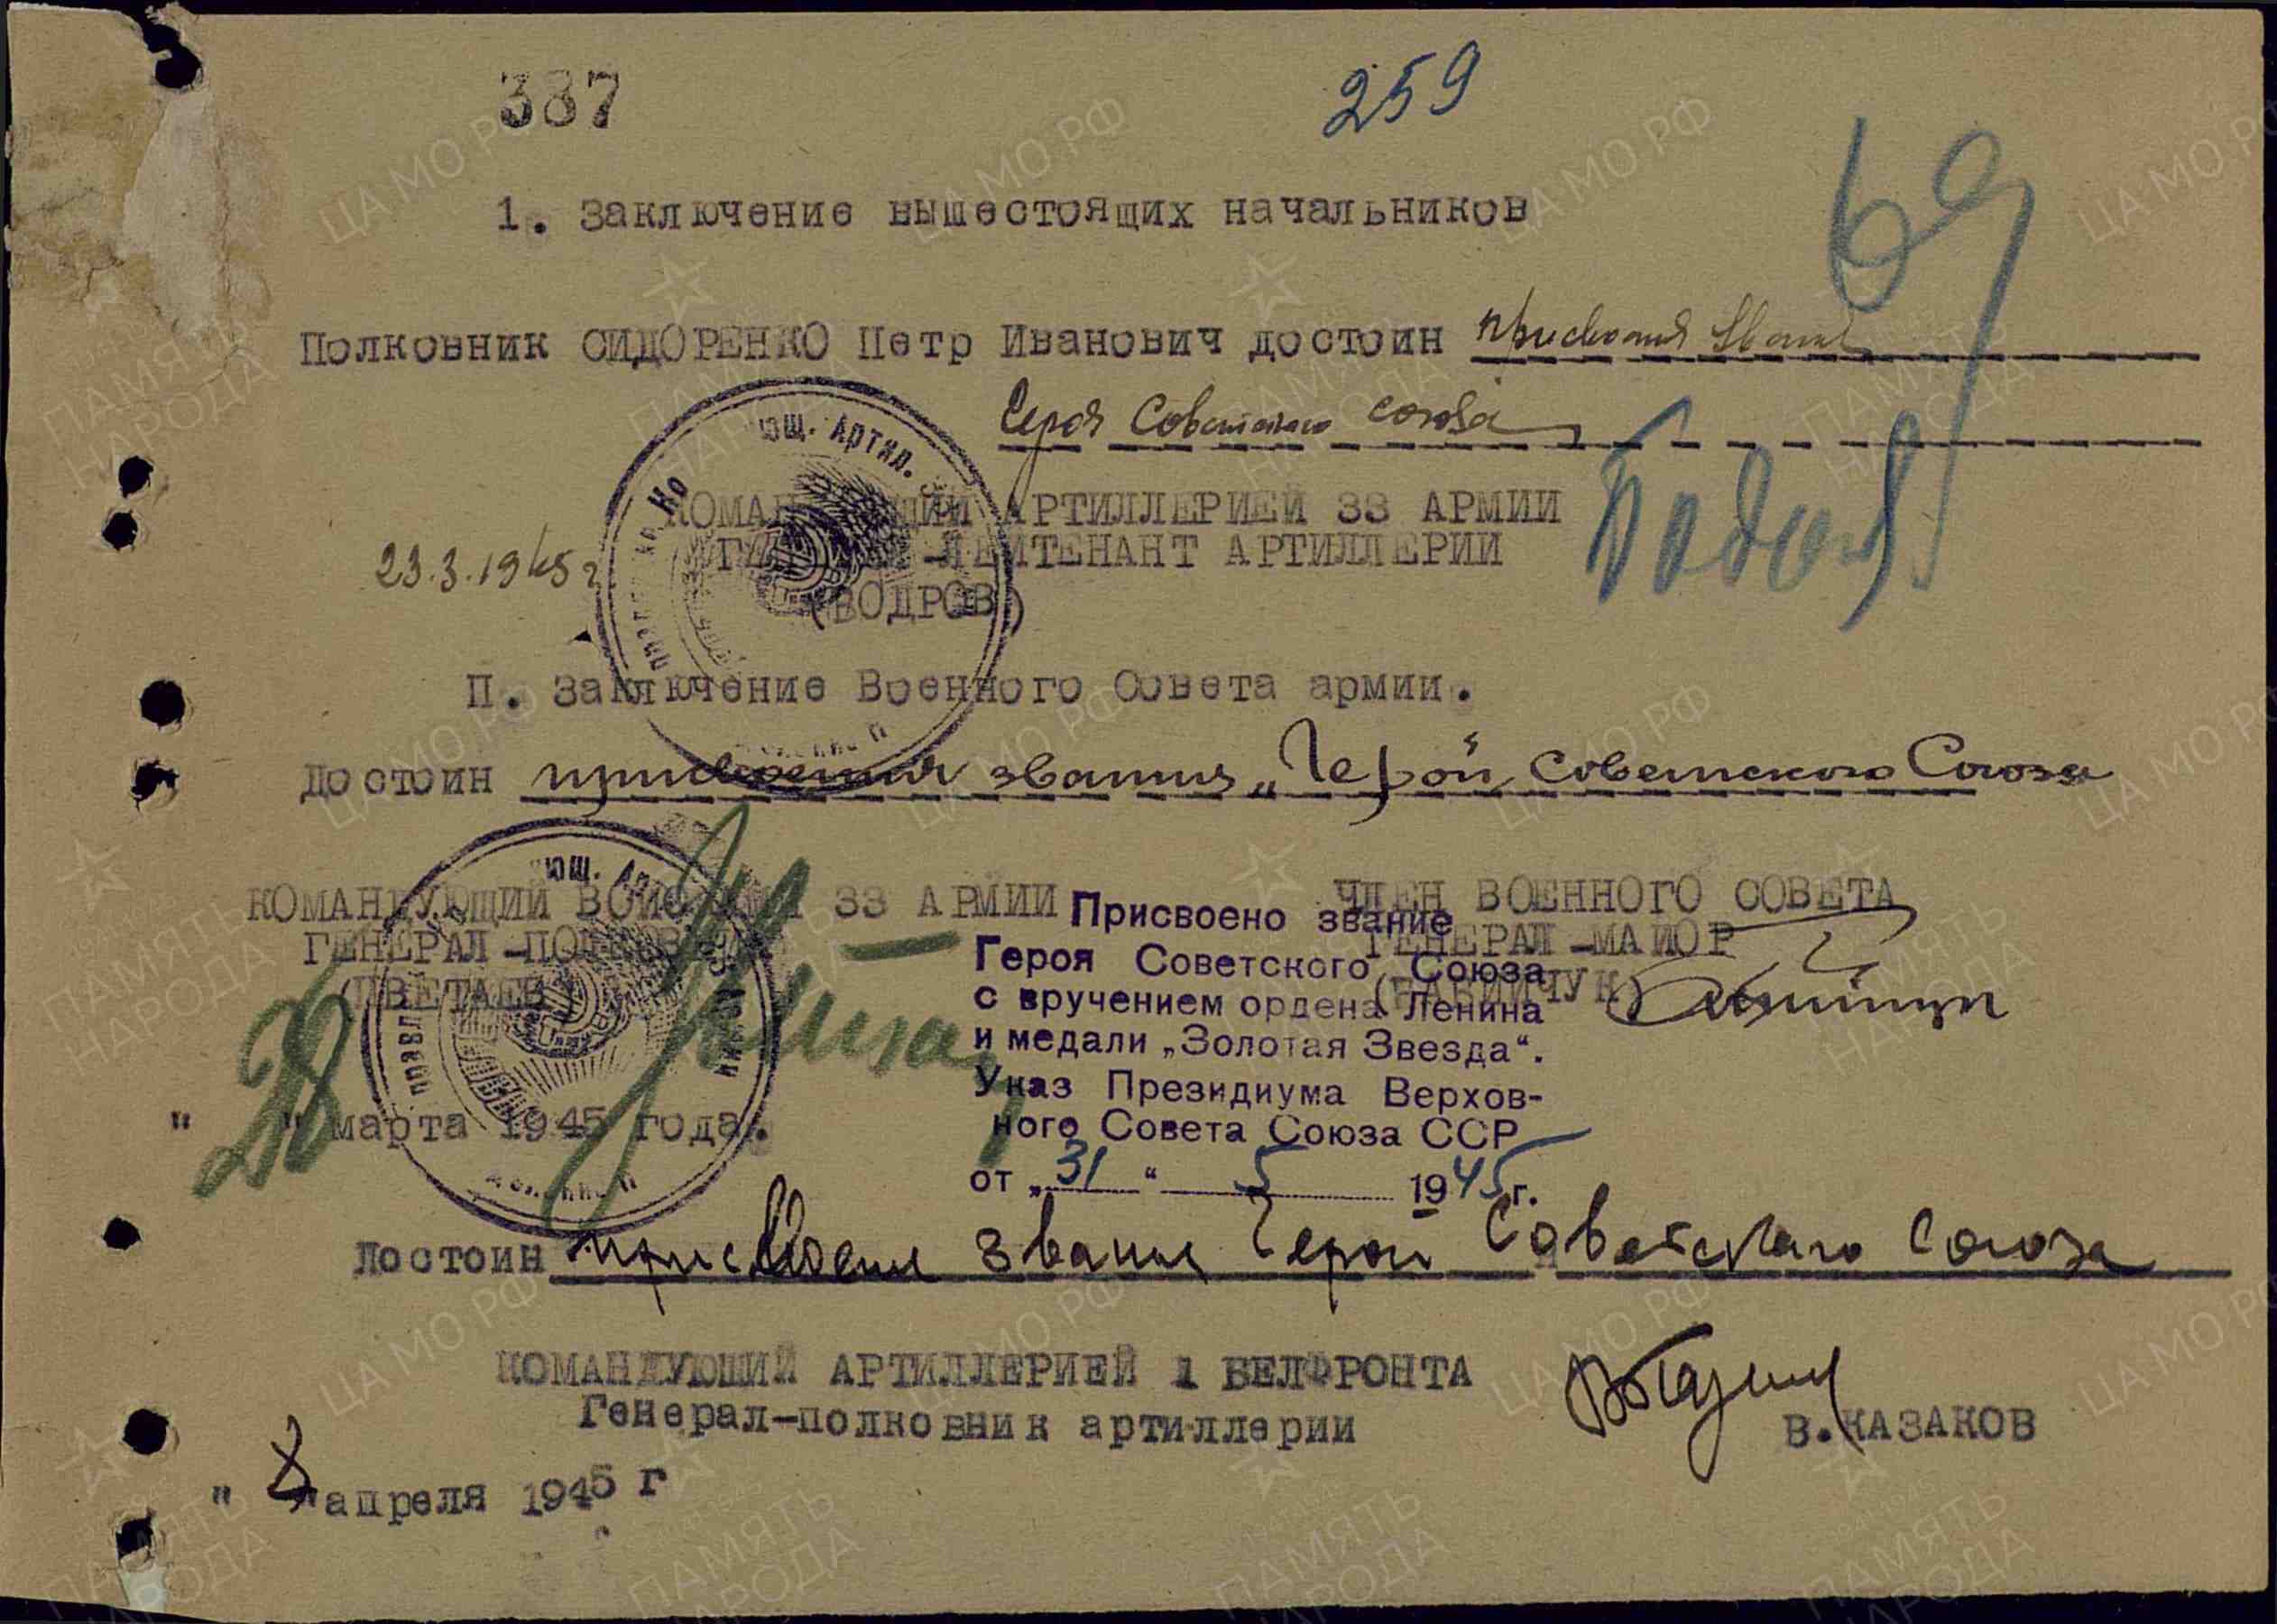 387
259
69
1. Заключение вышестоящих начальников
Полковник СИДОРЕНКО Петр Иванович достоин присвоения звания
Героя Советского союза
КОМАНДУЮЩИЙ АРТИЛЛЕРИЕЙ 33 АРМИИ
ГЕНЕРАЛ-ЛЕЙТЕНАНТ АРТИЛЛЕРИИ
23.3.1945 г.
(БОДРОВ)
П. Заключение Военного Совета армии.
Достоин присвоения звания „Герой Советского Союза
КОМАНДУЮЩИЙ ВОЙСКАМИ 33 АРМИИ
ГЕНЕРАЛ-ПОЛКОВНИК
(ЦВЕТАЕВ)
ЧЛЕН ВОЕННОГО СОВЕТА
ГЕНЕРАЛ-МАЙОР
(БАБИЙЧУК)
" " марта 1945 года.
Присвоено звание
Героя Советского Союза
с вручением ордена Ленина
и медали „Золотая Звезда“.
Указ Президиума Верхов-
ного Совета Союза ССР
от „31“ 5 1945 г.
Достоин присвоения звания Герой Советского Союза
КОМАНДУЮЩИЙ АРТИЛЛЕРИЕЙ 1 БЕЛФРОНТА
Генерал-полковник артиллерии
В.КАЗАКОВ
" 8 " апреля 1945 г
ЦА МО РФ
ПАМЯТЬ
НАРОДА